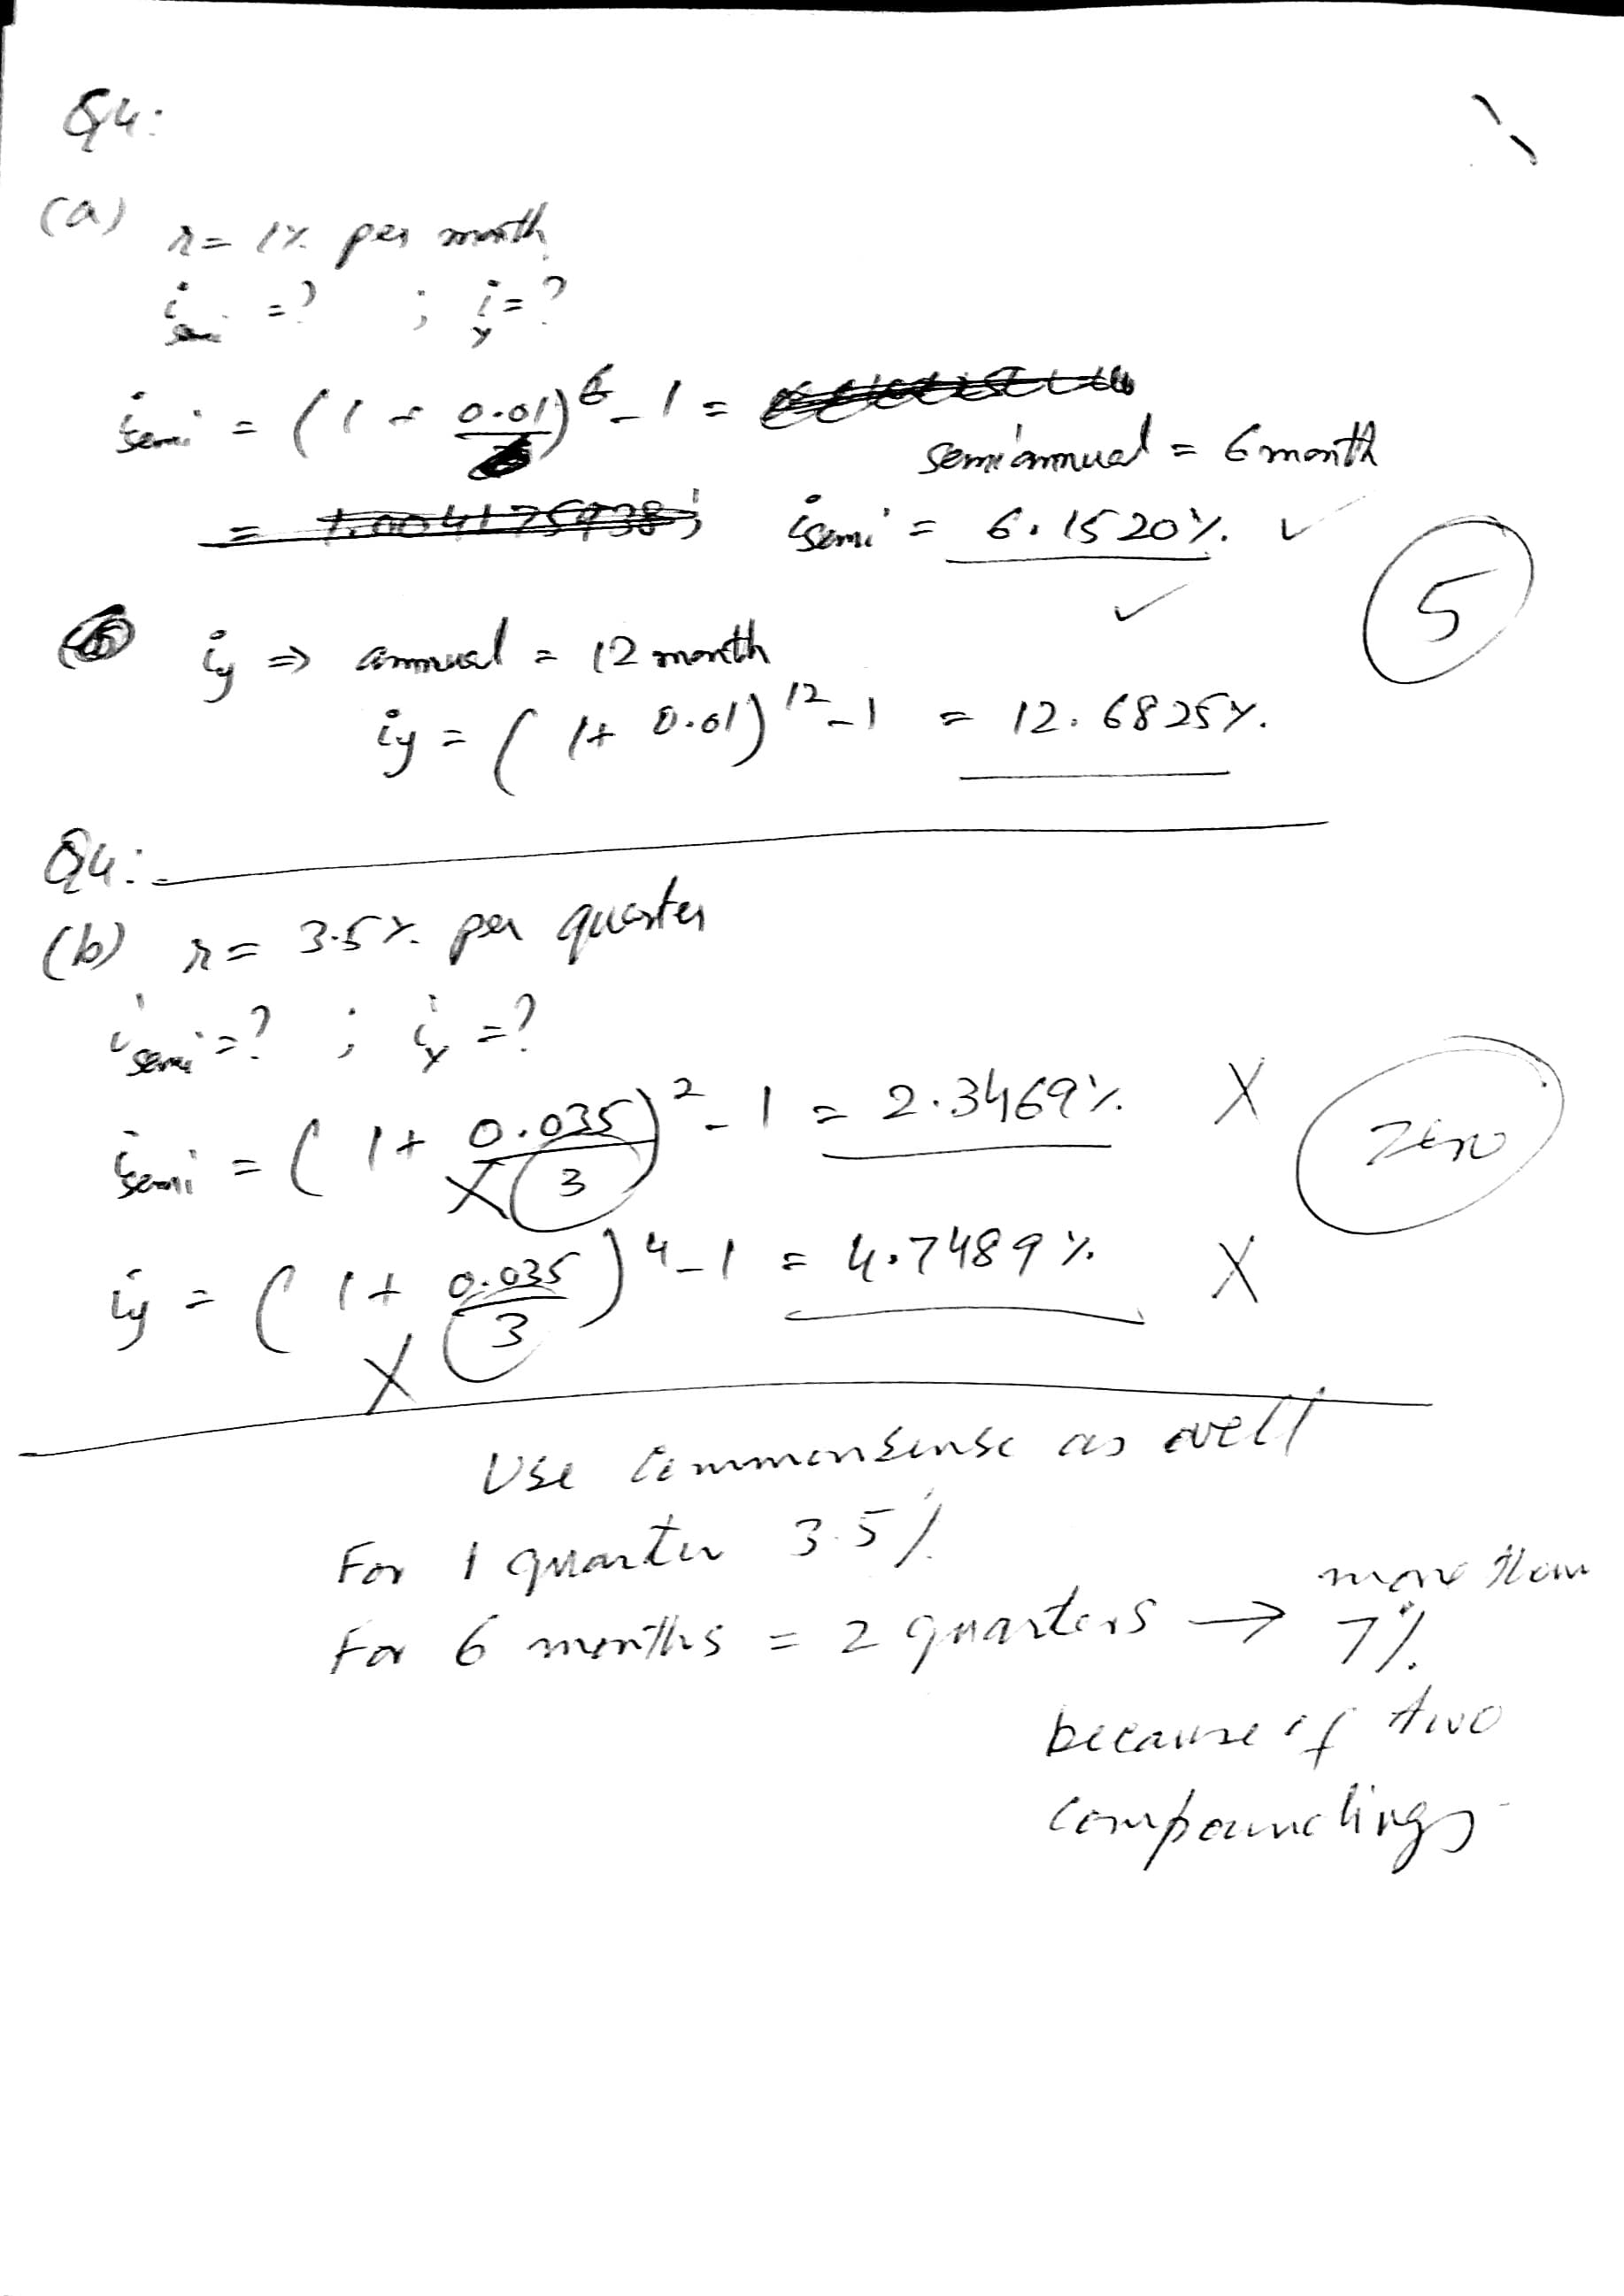 Q4:
(a) r = 1% per month
i semi = ? ; i y = ?
i semi = (1 + 0.01)^6 - 1 =
semiannual = 6 month
= 1.004175938; i semi = 6.1520% ✓
✓
5
i y ⇒ annual = 12 month
i y = (1 + 0.01)^12 - 1 = 12.6825%
Q4:
(b) r = 3.5% per quarter
i semi = ? ; i y = ?
i semi = (1 + 0.035/3)^2 - 1 = 2.3469% X
X
Zero
i y = (1 + 0.035/3)^4 - 1 = 4.7489% X
X
Use commonsense as well
For 1 quarter 3.5%
For 6 months = 2 quarters → more than 7%
because of two
compoundings